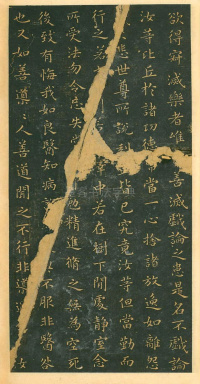 欲得寂滅樂者唯善滅戲論之患是名不戲論
汝等比丘於諸功德常當一心捨諸放逸如離怨
悲世尊所說利皆已究竟汝等但當勤而
行之若中若在樹下閒處靜室念
所受法勿令忘失勉精進脩之無為空死
後致有悔我如良醫知病說不服非醫咎
也又如善導導人善道聞之不行非導